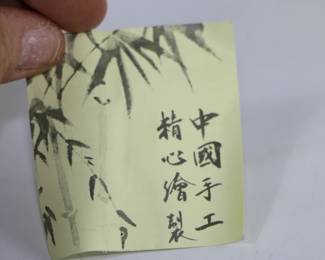 中國手工
精心繪製